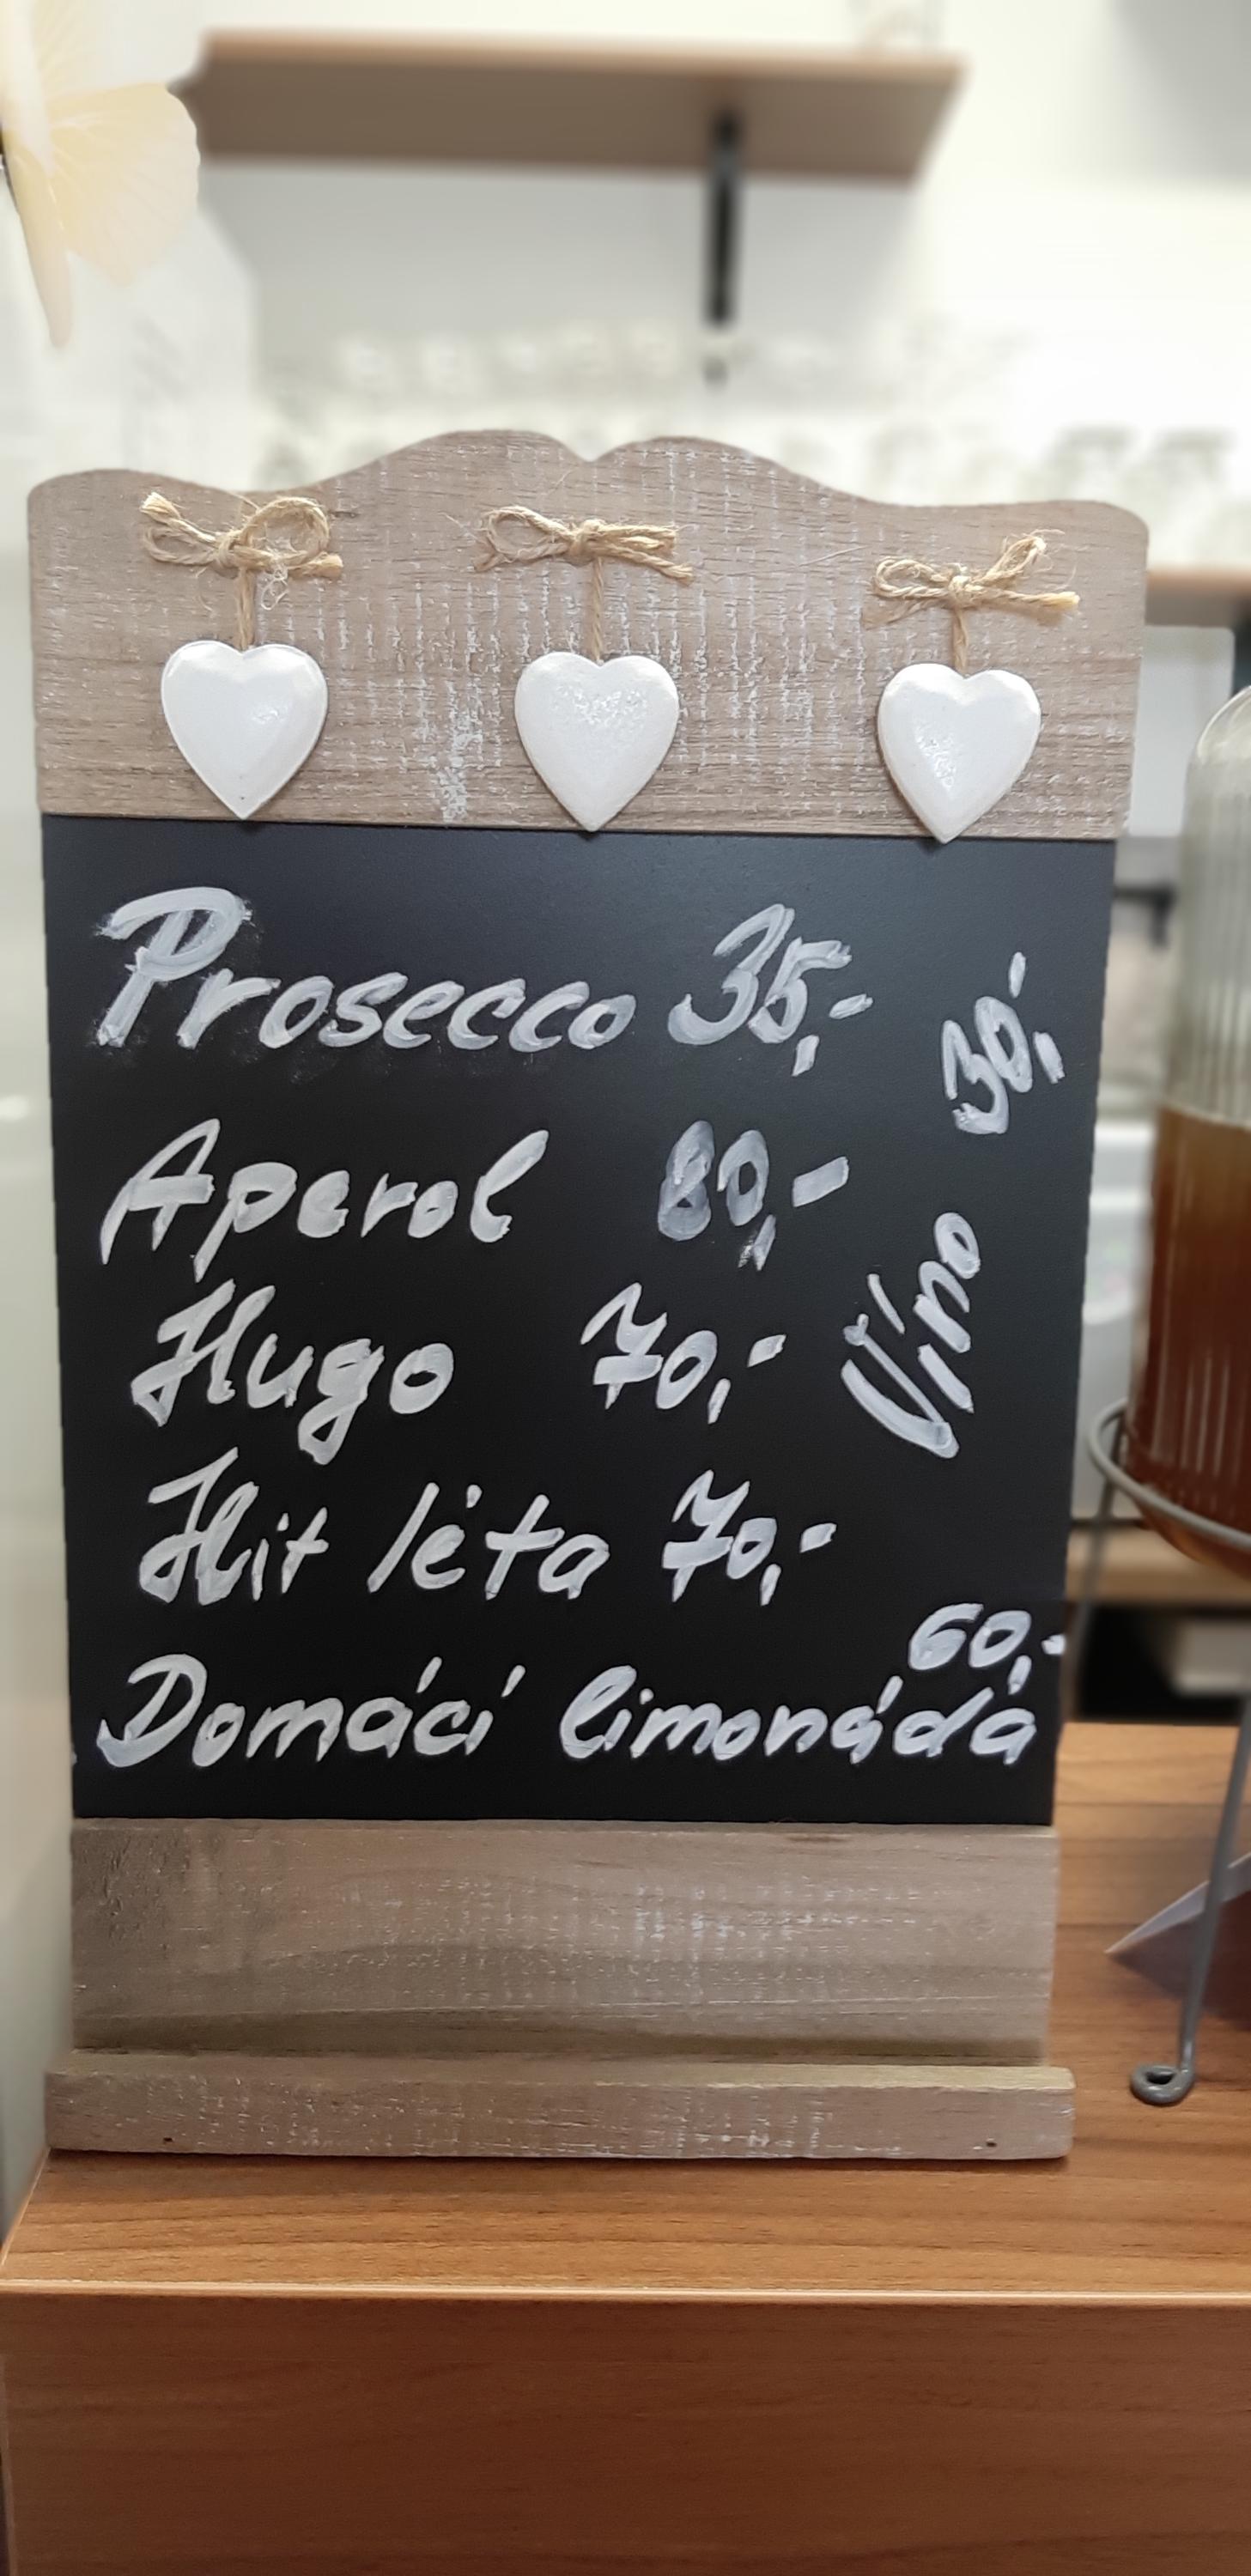 Prosecco 35,-
Aperol 80,-
Hugo 70,-
Hit léta 70,-
Domácí limonáda 60,-
Víno 30,-